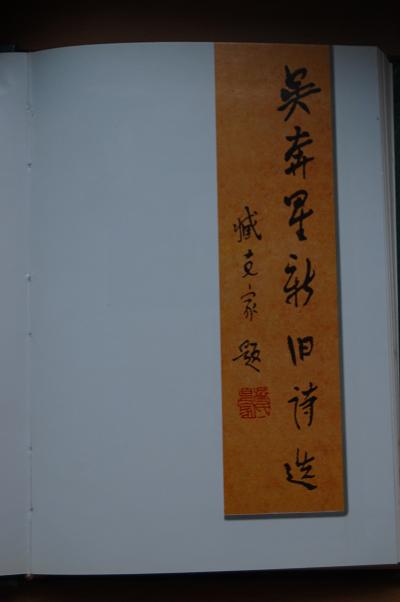 吴奔星新旧诗选
臧克家题